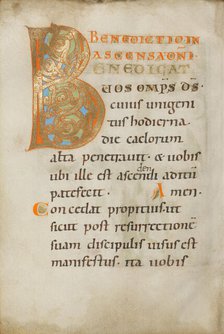 BENEDICTIO IN
ASCENSA DNI
BENEDICAT
UOS OMPS DS
cuius unigeni
tus hodierna
die caelorum
alta penetrauit · & uobis
ubi ille est ascendendi aditū
patefecit · Amen ·
Concedat propitius · ut
sicut post resurrectionē
suam discipulis uisus est
manifestus · ita uobis